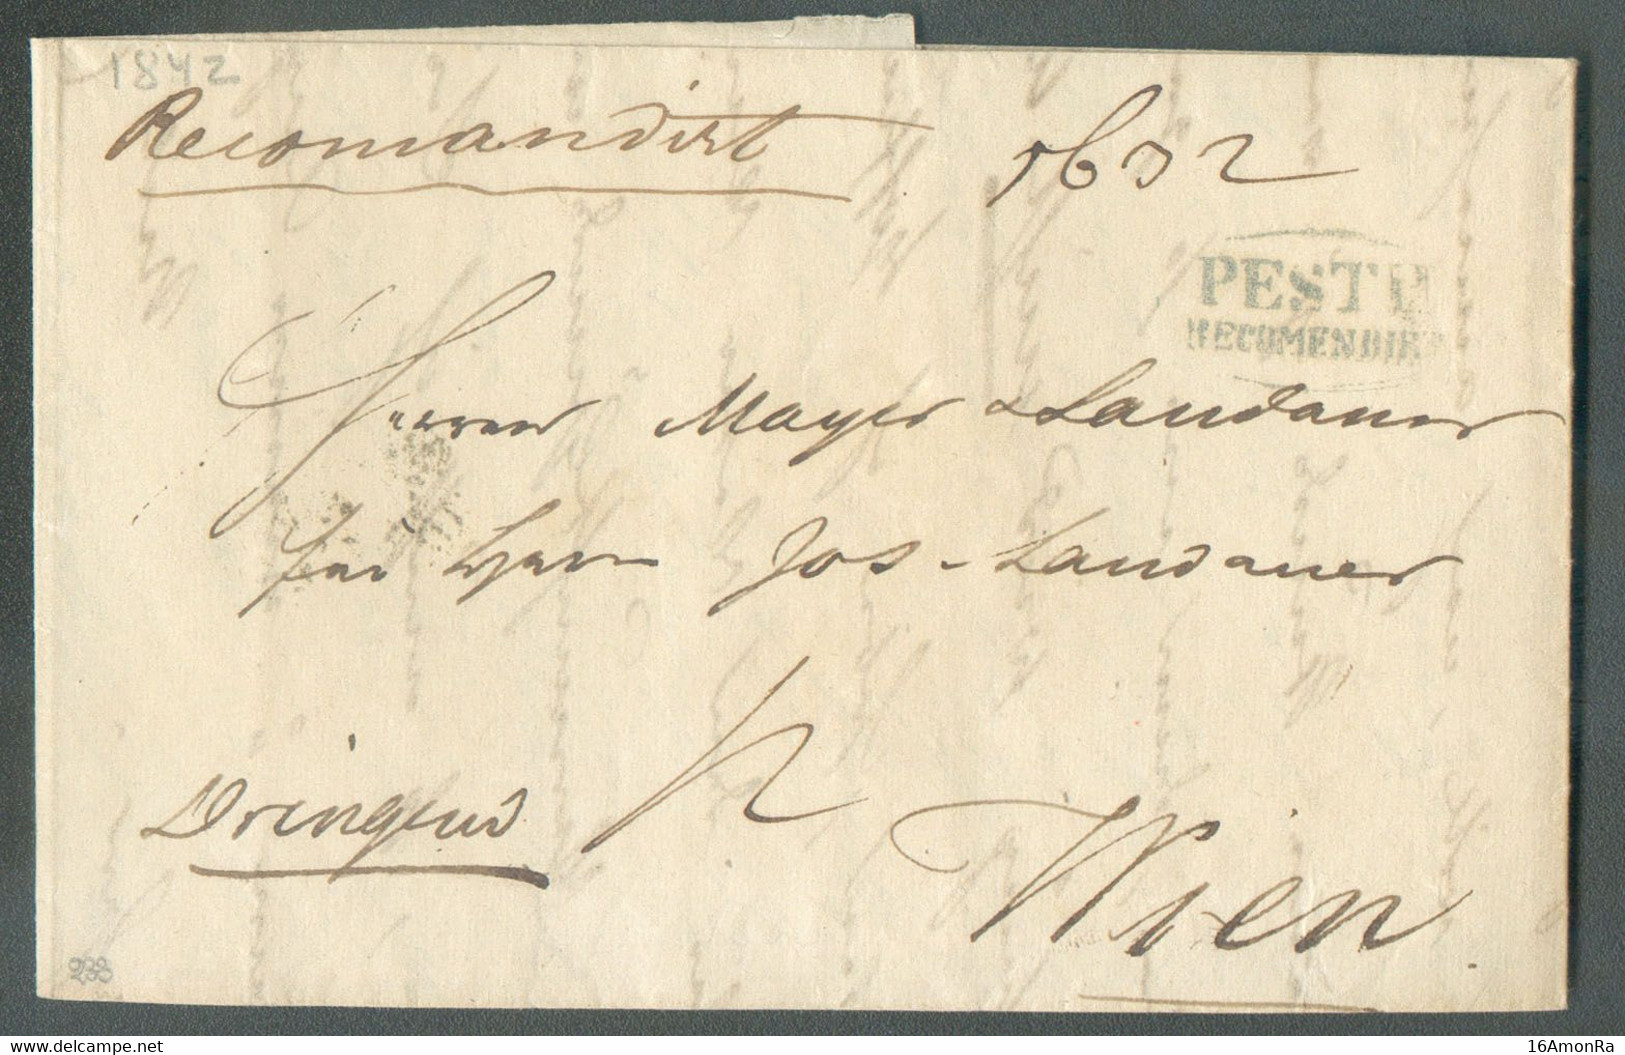 1842
Recomandirt
1632
PESTH
RECOMENDIRT
Herren Mayer Landauer
Herrn Jos. Landauer
Dringend
Wien
238
www.delcampe.net
16AmonRa